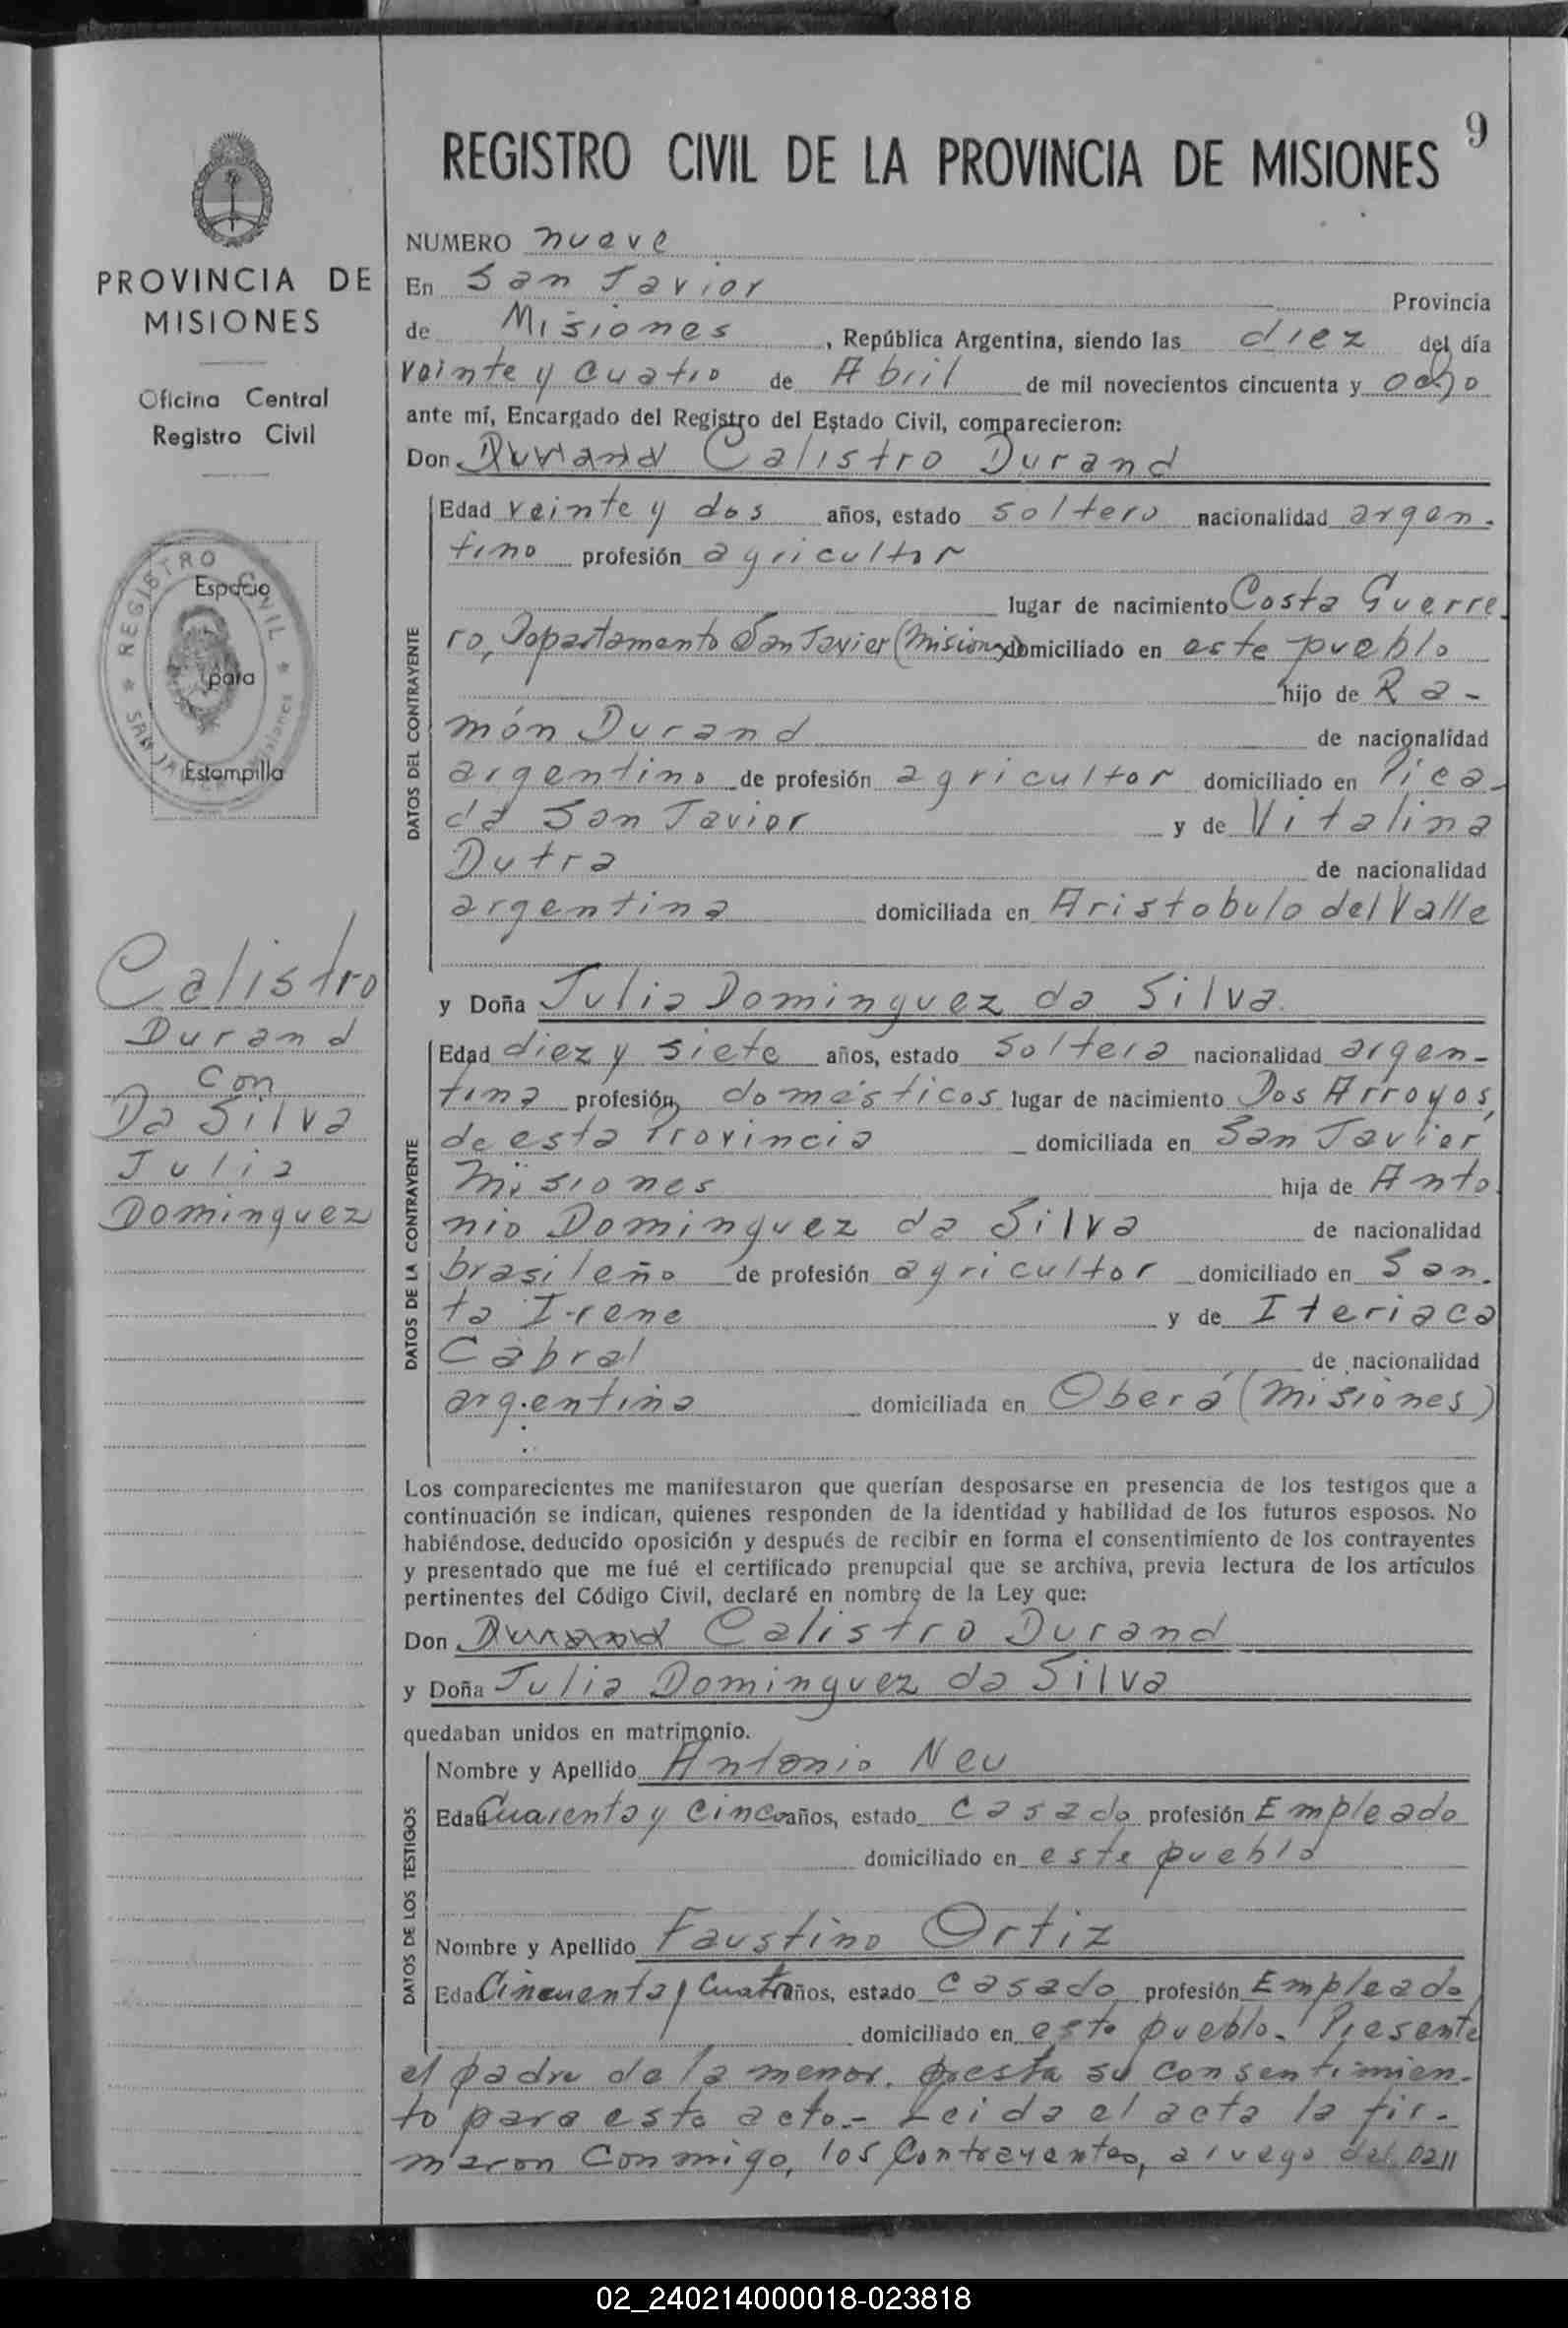 9
REGISTRO CIVIL DE LA PROVINCIA DE MISIONES
PROVINCIA DE
MISIONES
Oficina Central
Registro Civil
REGISTRO CIVIL
SAN JAVIER Misiones
Espacio
para
Estampilla
Calistro
Durand
con
Da Silva
Julia
Dominguez
NUMERO nueve
En San Javier Provincia
de Misiones, República Argentina, siendo las diez del día
veinte y cuatro de Abril de mil novecientos cincuenta y ocho
ante mí, Encargado del Registro del Estado Civil, comparecieron:
Don Durand Calistro Durand
DATOS DEL CONTRAYENTE
Edad veinte y dos años, estado soltero nacionalidad argen-
tino profesión agricultor
lugar de nacimiento Costa Guerre
ro, Departamento San Javier (Misiones) domiciliado en este pueblo
hijo de Ra-
món Durand de nacionalidad
argentino de profesión agricultor domiciliado en Pica-
da San Javier y de Vitalina
Dutra de nacionalidad
argentina domiciliada en Aristobulo del Valle
y Doña Julia Dominguez da Silva.
DATOS DE LA CONTRAYENTE
Edad diez y siete años, estado soltera nacionalidad argen-
tina profesión domésticos lugar de nacimiento Dos Arroyos,
de esta Provincia domiciliada en San Javier,
Misiones hija de Anto
nio Dominguez da Silva de nacionalidad
brasileño de profesión agricultor domiciliado en San-
ta Irene y de Iteriaca
Cabral de nacionalidad
argentina domiciliada en Oberá (Misiones)
Los comparecientes me manifestaron que querían desposarse en presencia de los testigos que a
continuación se indican, quienes responden de la identidad y habilidad de los futuros esposos. No
habiéndose, deducido oposición y después de recibir en forma el consentimiento de los contrayentes
y presentado que me fué el certificado prenupcial que se archiva, previa lectura de los artículos
pertinentes del Código Civil, declaré en nombre de la Ley que:
Don Durand Calistro Durand
y Doña Julia Dominguez da Silva
quedaban unidos en matrimonio.
DATOS DE LOS TESTIGOS
Nombre y Apellido Antonio Neu
Edad Cuarenta y cinco años, estado casado profesión Empleado
domiciliado en este pueblo
Nombre y Apellido Faustino Ortiz
Edad Cincuenta y Cuatro años, estado casado profesión Empleado
domiciliado en este pueblo. Presente
el padre de la menor, presta su consentimien-
to para este acto.- Leida el acta la fir-
maron conmigo, los contrayentes, a ruego del
02_240214000018-023818